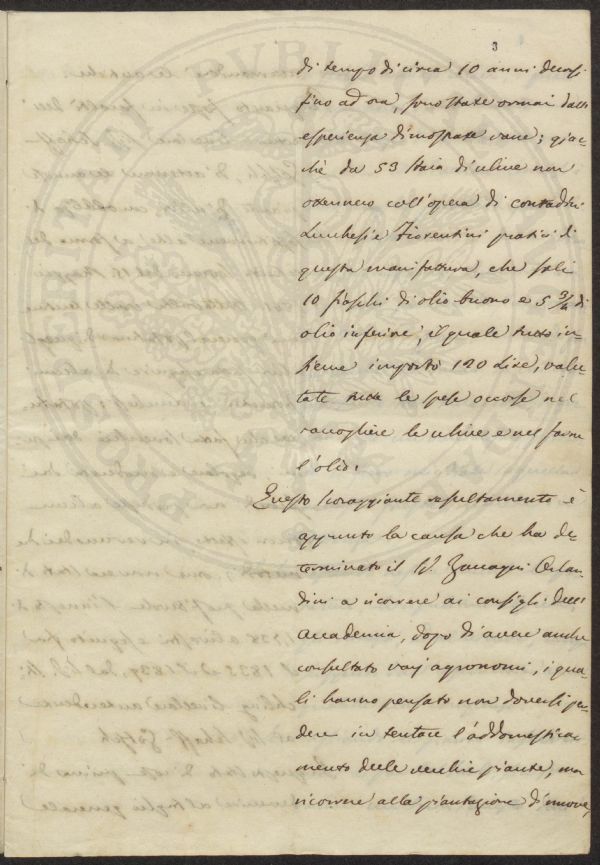 3
di tempo di circa 10 anni decorsi
fino ad ora, sono state ormai dalla
esperienza dimostrate vane; gia-
chè da 53 staia di ulive non
ottennero coll'opera di contadini
Lucchesi e Fiorentini pratici di
questa manifattura, che soli
10 fiaschi di olio buono e 5 3/4 di
olio inferiore; il quale tutto in-
sieme importò 120 Lire, valu-
tate tutte le spese occorse nel
raccogliere le ulive e nel farne
l'olio.
Questo scoraggiante resultamento è
appunto la causa che ha de-
terminato il Sig. Zuccagni Orlan-
dini a ricorrere ai consigli dell'
Accademia, dopo di avere anche
consultato varj agronomi, i qua-
li hanno pensato non doversi per-
dere in tentare l'addomestica-
mento delle vecchie piante, ma
ricorrere alla piantagione di nuove,